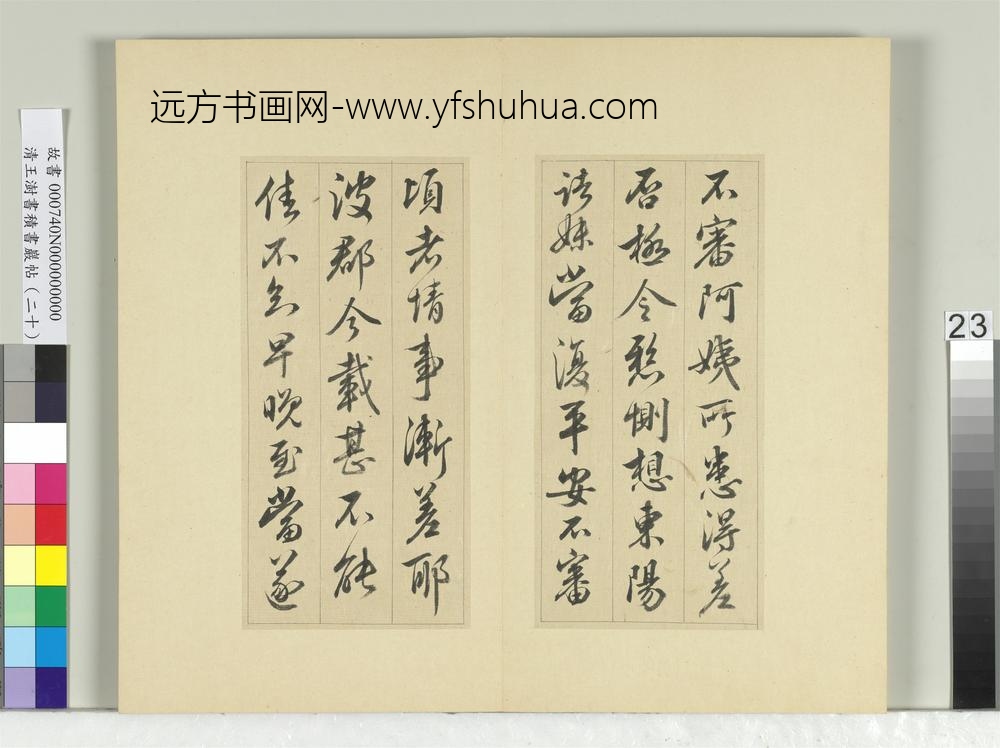 远方书画网-www.yfshuhua.com
不審阿姨所患得差
否極令愁惻想東陽
諸妹當復平安不審
頃者情事漸差耶
汝郡今載甚不能
佳不知早晚至當遂
故書 000740N000000000
清王澍書積書巖帖(二十)
23